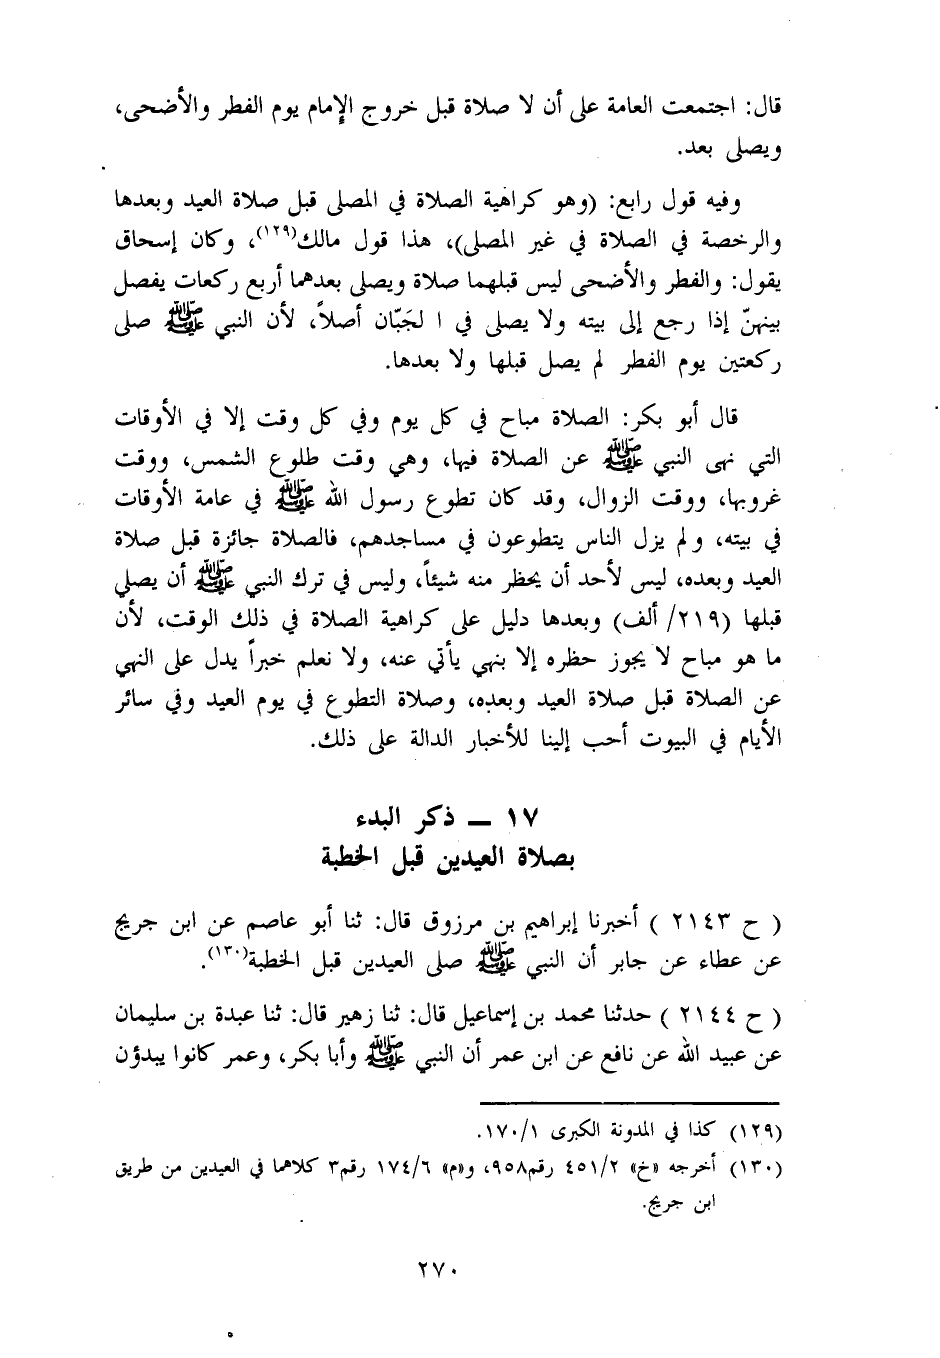 قال: اجتمعت العامة على أن لا صلاة قبل خروج الإمام يوم الفطر والأضحى،
ويصلى بعد.
وفيه قول رابع: (وهو كراهية الصلاة في المصلى قبل صلاة العيد وبعدها
والرخصة في الصلاة في غير المصلى)، هذا قول مالك(١٢٩)، وكان إسحاق
يقول: والفطر والأضحى ليس قبلهما صلاة ويصلى بعدهما أربع ركعات يفصل
بينهنّ إذا رجع إلى بيته ولا يصلى في ا لجَبّان أصلاً، لأن النبي ﷺ صلى
ركعتين يوم الفطر لم يصل قبلها ولا بعدها.
قال أبو بكر: الصلاة مباح في كل يوم وفي كل وقت إلا في الأوقات
التي نهى النبي ﷺ عن الصلاة فيها، وهي وقت طلوع الشمس، ووقت
غروبها، ووقت الزوال، وقد كان تطوع رسول الله ﷺ في عامة الأوقات
في بيته، ولم يزل الناس يتطوعون في مساجدهم، فالصلاة جائزة قبل صلاة
العيد وبعده، ليس لأحد أن يحظر منه شيئاً، وليس في ترك النبي ﷺ أن يصلي
قبلها (٢١٩/ ألف) وبعدها دليل على كراهية الصلاة في ذلك الوقت، لأن
ما هو مباح لا يجوز حظره إلا بنهي يأتي عنه، ولا نعلم خبراً يدل على النهي
عن الصلاة قبل صلاة العيد وبعده، وصلاة التطوع في يوم العيد وفي سائر
الأيام في البيوت أحب إلينا للأخبار الدالة على ذلك.
١٧ ــ ذكر البدء
بصلاة العيدين قبل الخطبة
( ح ٢١٤٣ ) أخبرنا إبراهيم بن مرزوق قال: ثنا أبو عاصم عن ابن جريج
عن عطاء عن جابر أن النبي ﷺ صلى العيدين قبل الخطبة(١٣٠).
( ح ٢١٤٤ ) حدثنا محمد بن إسماعيل قال: ثنا زهير قال: ثنا عبدة بن سليمان
عن عبيد الله عن نافع عن ابن عمر أن النبي ﷺ وأبا بكر، وعمر كانوا يبدؤن
(١٢٩) كذا في المدونة الكبرى ١/ ١٧٠.
(١٣٠) أخرجه «خ» ٢/ ٤٥١ رقم٩٥٨، و«م» ٦/ ١٧٤ رقم٣ كلاهما في العيدين من طريق
ابن جريج.
٢٧٠